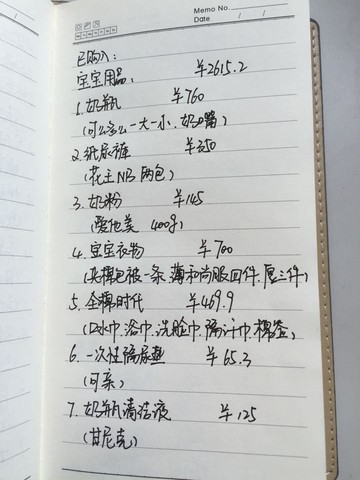 Memo No.
Date / /
已购入:
宝宝用品: ¥2615.2
1.奶瓶 ¥760
(可么多么一大一小.奶嘴)
2.纸尿裤 ¥350
(花王NB两包)
3.奶粉 ¥145
(爱他美 400g)
4.宝宝衣物 ¥700
(夹棉包被一条.薄和尚服四件.厚三件)
5.全棉时代 ¥469.9
(口水巾.浴巾.洗脸巾.隔汗巾.棉签)
6.一次性隔尿垫 ¥65.3
(可亲)
7.奶瓶清洁液 ¥125
(甘尼克)